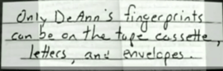 Only DeAnn's fingerprints
can be on the tape cassette,
letters, and envelopes.